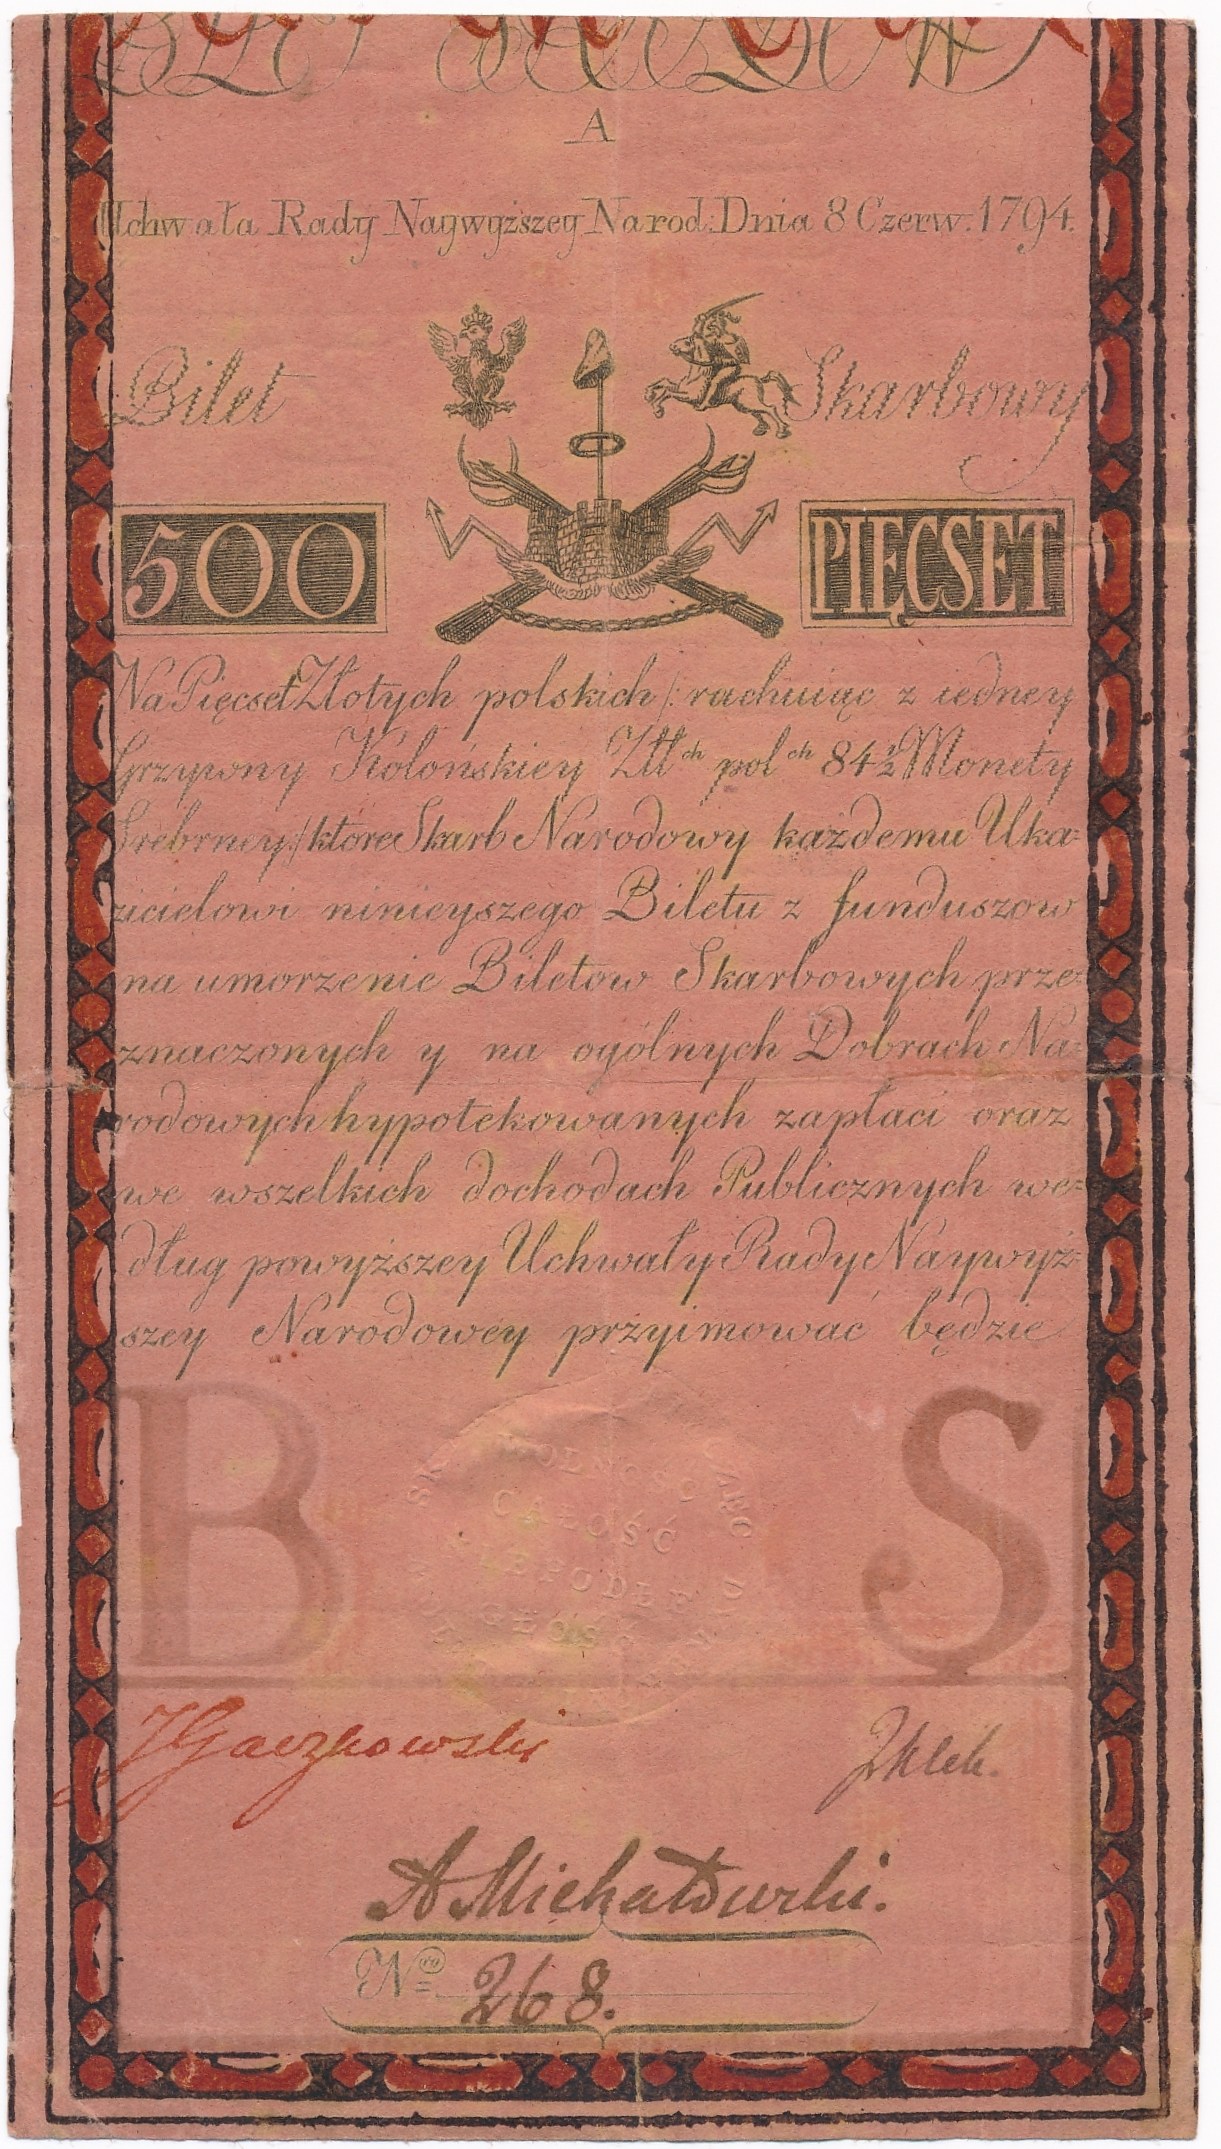 A
Uchwała Rady Naywyższey Narod: Dnia 8 Czerw. 1794.
Bilet Skarbowy
500 PIĘCSET
Na Pięcset Złotych polskich /: rachuiąc z iedney
Grzywny Kolońskiey Złł ch pol ch 84½ Monety
Srebrney :/ ktore Skarb Narodowy każdemu Uka=
zicielowi ninieyszego Biletu z funduszow
na umorzenie Biletow Skarbowych prze=
znaczonych y na ogólnych Dobrach Na=
rodowych hypotekowanych zapłaci oraz
we wszelkich dochodach Publicznych we=
dług powyższey Uchwały Rady Naywyż=
szey Narodowey przyimować będzie
B S
WOLNOSC
CAŁOŚĆ
NIEPODLE
GŁOŚĆ
JGaczkowski
A Michałowski.
Nro 268.